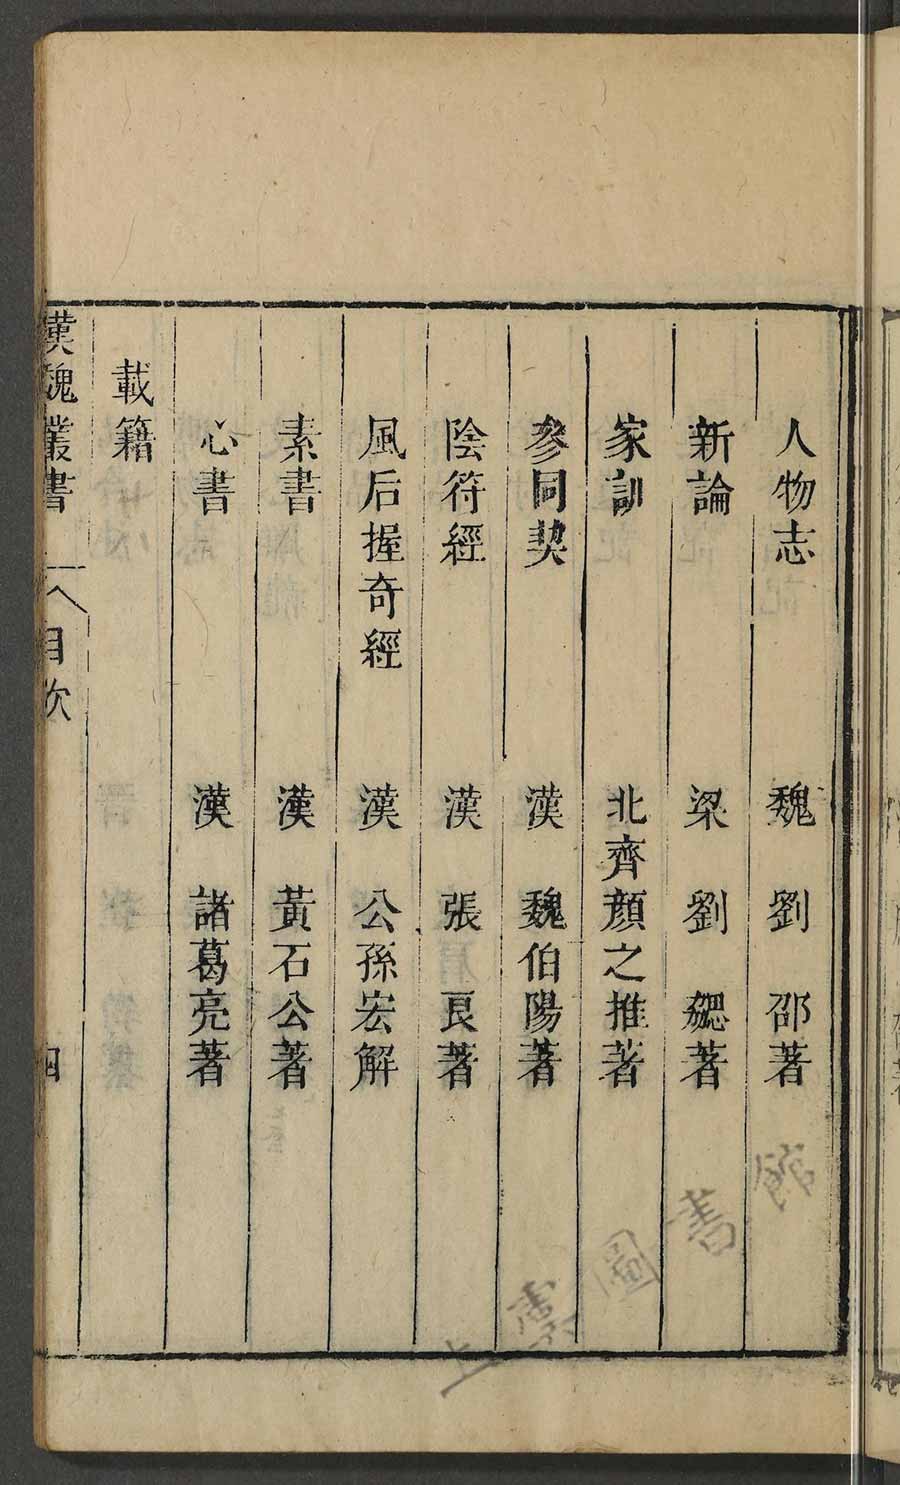 人物志 魏 劉 邵著
新論 梁 劉 勰著
家訓 北齊顏之推著
參同契 漢 魏伯陽著
陰符經 漢 張 良著
風后握奇經 漢 公孫宏解
素書 漢 黃石公著
心書 漢 諸葛亮著
載籍
漢魏叢書 目次 四
圖書館